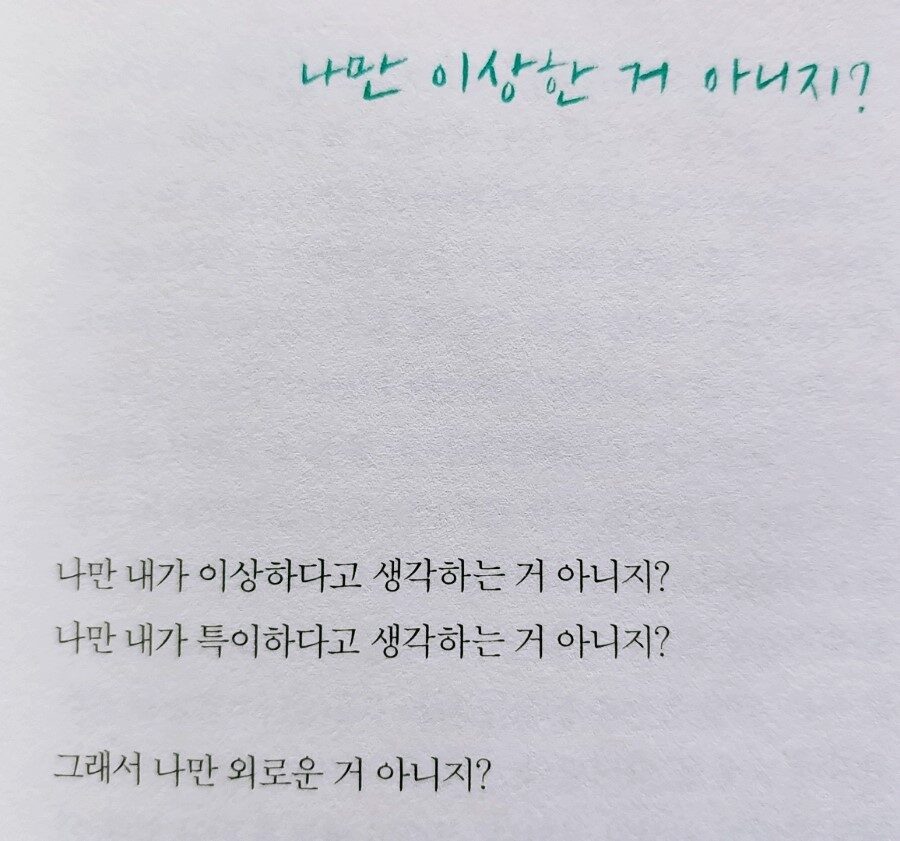 나만 이상한 거 아니지?
나만 내가 이상하다고 생각하는 거 아니지?
나만 내가 특이하다고 생각하는 거 아니지?
그래서 나만 외로운 거 아니지?